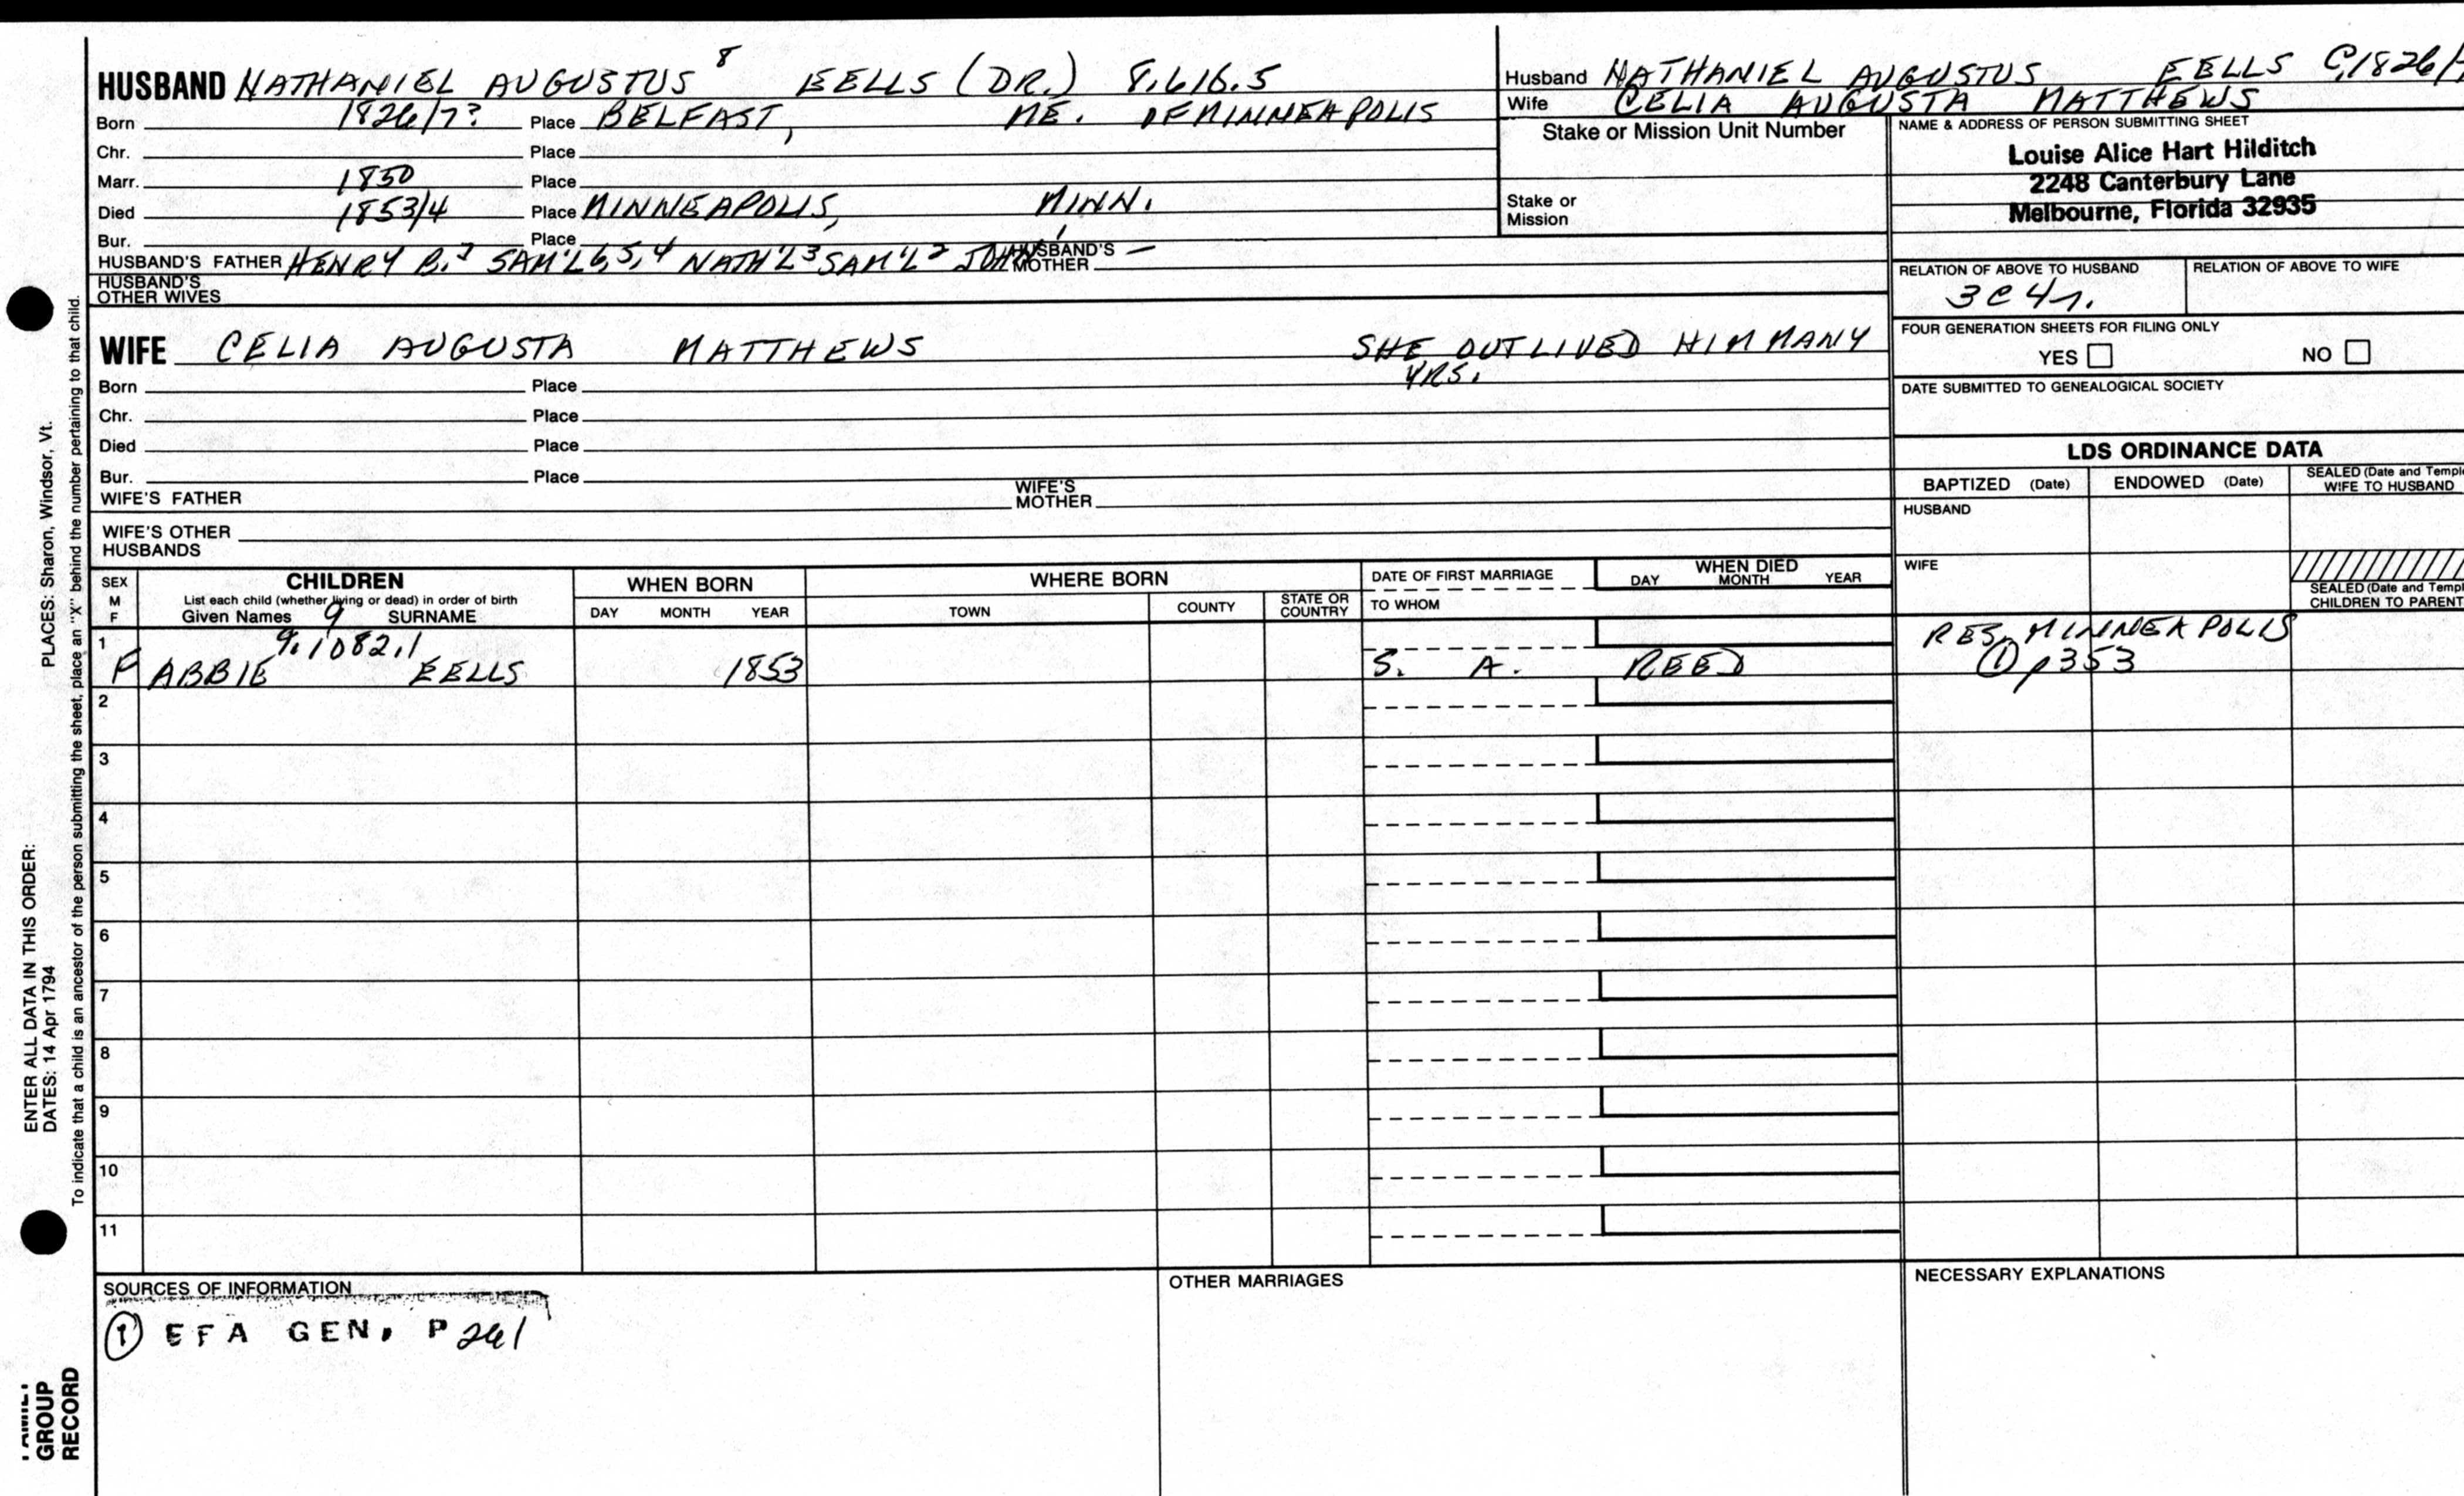 HUSBAND NATHANIEL AUGUSTUS 8 EELLS (DR.) 8.616.5
Born 1826/7? Place BELFAST, ME. OF MINNEAPOLIS
Chr. Place
Marr. 1850 Place
Died 1853/4 Place MINNEAPOLIS, MINN.
Bur. Place
HUSBAND'S FATHER HENRY B.7 SAM'L 6,5,4 NATH'L3 SAM'L2 JOHN1 HUSBAND'S MOTHER —
HUSBAND'S OTHER WIVES
Husband NATHANIEL AUGUSTUS EELLS C.1826/
Wife CELIA AUGUSTA MATTHEWS
Stake or Mission Unit Number
Stake or
Mission
NAME & ADDRESS OF PERSON SUBMITTING SHEET
Louise Alice Hart Hilditch
2248 Canterbury Lane
Melbourne, Florida 32935
RELATION OF ABOVE TO HUSBAND RELATION OF ABOVE TO WIFE
3C4r.
FOUR GENERATION SHEETS FOR FILING ONLY
YES NO
DATE SUBMITTED TO GENEALOGICAL SOCIETY
WIFE CELIA AUGUSTA MATTHEWS SHE OUTLIVED HIM MANY
YRS.
Born Place
Chr. Place
Died Place
Bur. Place
WIFE'S FATHER WIFE'S MOTHER
WIFE'S OTHER
HUSBANDS
LDS ORDINANCE DATA
BAPTIZED (Date) ENDOWED (Date) SEALED (Date and Temple
WIFE TO HUSBAND
HUSBAND
WIFE
SEALED (Date and Templ
CHILDREN TO PARENT
SEX
M
F
CHILDREN
List each child (whether living or dead) in order of birth
Given Names 9 SURNAME
WHEN BORN
DAY MONTH YEAR
WHERE BORN
TOWN COUNTY STATE OR COUNTRY
DATE OF FIRST MARRIAGE
TO WHOM
WHEN DIED
DAY MONTH YEAR
1 9.1082.1 RES. MINNEAPOLIS
F ABBIE EELLS 1853 S. A. REED ① p353
2
3
4
5
6
7
8
9
10
11
SOURCES OF INFORMATION
① EFA GEN. P 261
OTHER MARRIAGES
NECESSARY EXPLANATIONS
ENTER ALL DATA IN THIS ORDER:
DATES: 14 Apr 1794
PLACES: Sharon, Windsor, Vt.
To indicate that a child is an ancestor of the person submitting the sheet, place an "X" behind the number pertaining to that child.
FAMILY
GROUP
RECORD